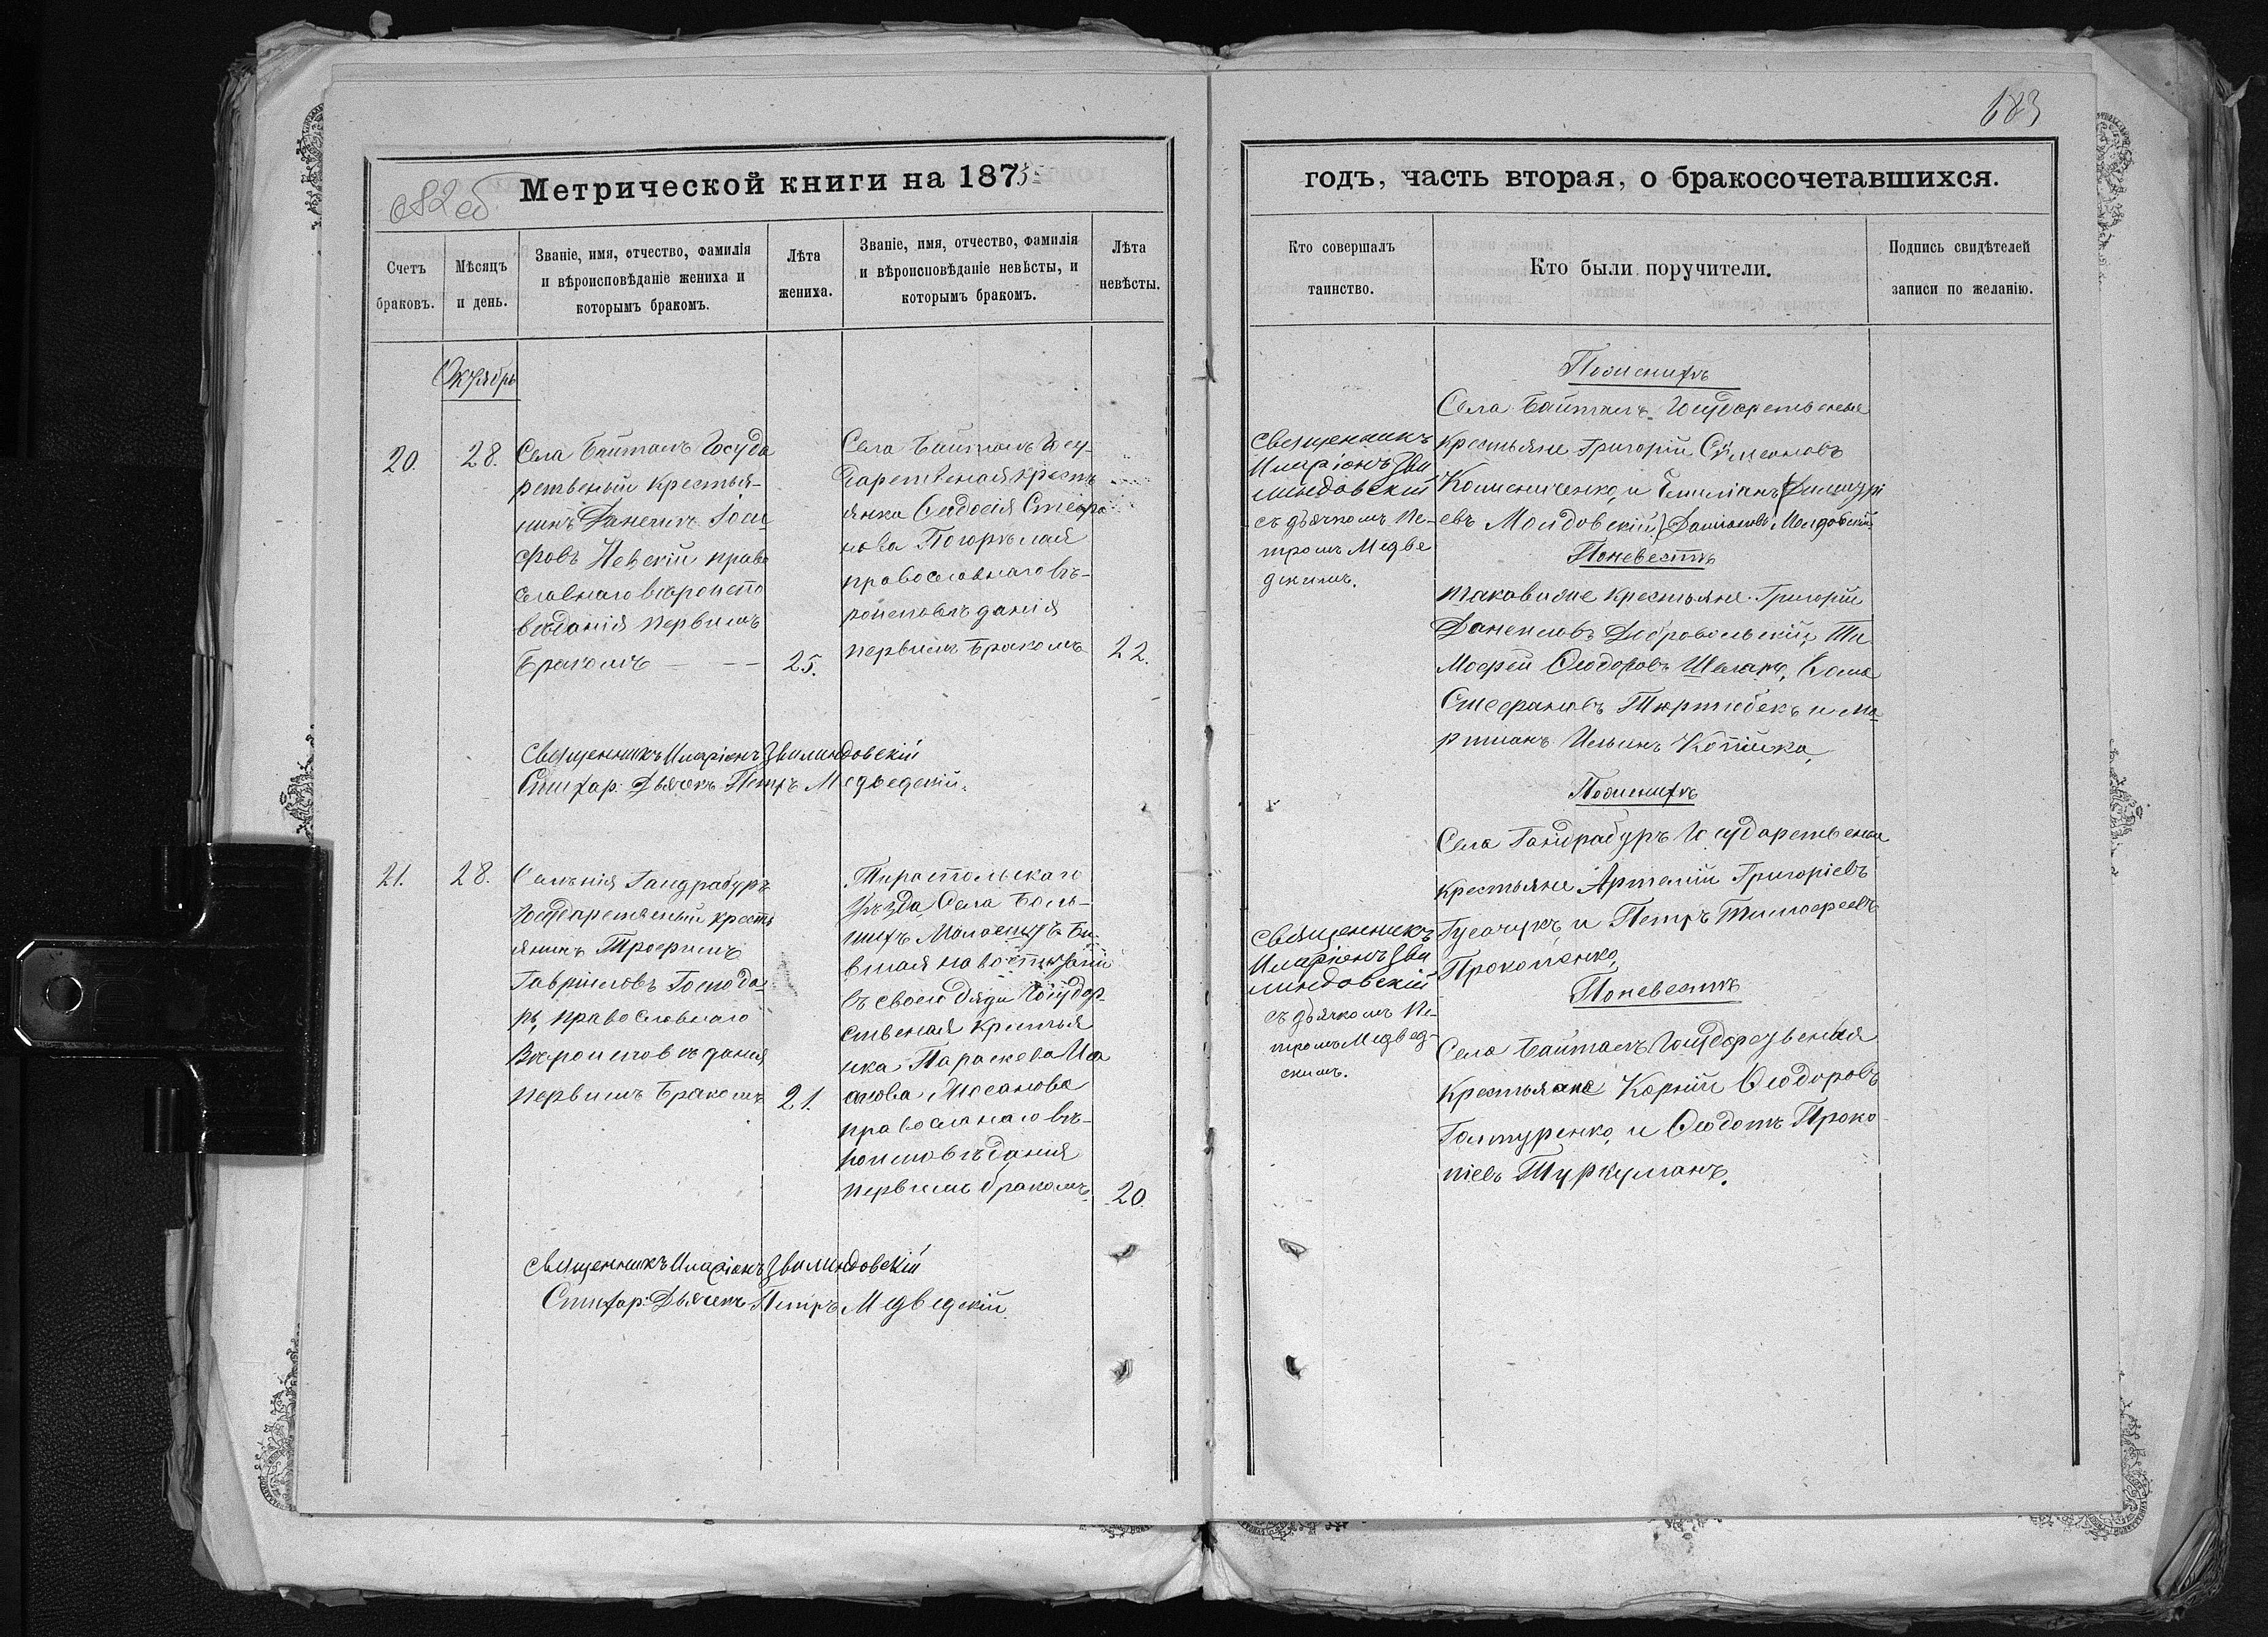 682 об
Метрической книги на 1873
Счетъ браковъ.
Мѣсяцъ и день.
Званіе, имя, отчество, фамилія
и вѣроисповѣданіе жениха и
которымъ бракомъ.
Лѣта жениха.
Званіе, имя, отчество, фамилія
и вѣроисповѣданіе невѣсты, и
которымъ бракомъ.
Лѣта невѣсты.
Октябрь
20.
28.
Села Байталъ Госуда
рственый крестья-
нинъ Данеилъ Іоси
фовъ Невскій право
славнаго вѣроиспо
вѣданія первимъ
бракомъ
25.
Села Байталъ Госу-
дарственая кресть
янка Феодосія Стефа
нова Погорѣлая
православнаго вѣ-
роисповѣданія
первимъ бракомъ
22.
Священникъ Иларіонъ Звилиндовскій
Стихар: Дьячекъ Петръ Медведскій.
21.
28.
Селенія Гандрабуръ
Государственый кресть
янинъ Трофимъ
Гавріиловъ Господа-
рь, православнаго
Вѣроисповѣданія
первимъ бракомъ
21.
Тираспольскаго
Уѣзда Села Боль-
шихъ
въ своего дяди Государ-
ственая крестья
нка Параскева Иса
акова
православнаго вѣ-
роисповѣданія
первимъ бракомъ
20.
Священникъ Иларіонъ Звилиндовскій
Стихар: Дьячекъ Петръ Медведскій
683
годъ, часть вторая, о бракосочетавшихся.
Кто совершалъ таинство.
Кто были поручители.
Подпись свидѣтелей
записи по желанію.
Священникъ
Иларіонъ Зви
линдовскій
съ дьячкомъ Пе-
тромъ Медве
дскимъ.
Пожених
Села Байталъ Государственые
крестьяне Григорій Симеоновъ
и Емиліанъ Димитрі
евъ Молдовскій
Поневестѣ
таковиеже крестьяне Григорій
Данеиловъ Добровольскій, Ти
мофей Феодоровъ
Стефановъ и Ма-
ртианъ Ильинъ
Священникъ
Иларіонъ Зви
линдовскій
съ дьячкомъ Пе-
тромъ Медвед-
скимъ.
Пожених
Села Гандрабуръ Государственые
крестьяне Артемій Григоріевъ
и Петръ Тимофеевъ
Прокопенко,
Поневестѣ
Села Байталъ Государственыя
Крестьяне Корній Феодоровъ
и Феодотъ Проко-
піевъ Туркуманъ.